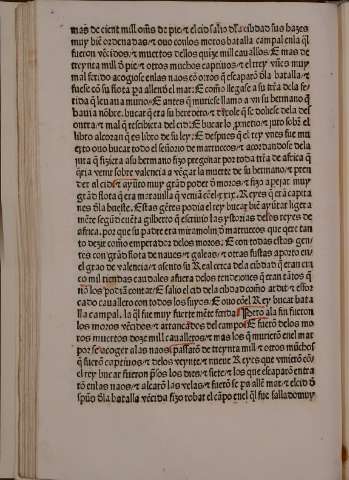 mas de cient mill om̃s de pie/⁊ el cid salio dla cibdad sus hazes
muy biẽ ordenadas/⁊ ouo conlos moros batalla campal enla q̃l
fueron vẽcidos/⁊ muertos dellos quize mill cauallos. E mas de
treynta mill d̃ pie/⁊ otros muchos captiuos/⁊ el rey yũes muy
mal ferido acogiose enlas naos cõ otros q̃ escaparõ dla batalla/⁊
fuese cõ su flota pa allend el mar: E como llegase a su tr̃ra dela
E antes q̃ muriese llamo a vn su hermano q̃
auia nõbre. bucar q̃ era su heredero/⁊
El bucar lo ꝓmetio/⁊ juro sobr̃el
libro alcoran q̃ es libro de su ley. E despues q̃ el rey yunes fue mu
erto ouo bucar todo el señorio de marruecos/⁊ acordandose dela
jura q̃ fiziera a su hermano fizo pregonar por toda tr̃ra de africa q̃
q̃ria venir sobre valencia a vẽgar la muerte de su hermano/⁊ pren
der al cid/⁊ ayũto muy grãd poder d̃ moros/⁊ fizo apejar muy
grãd flota q̃ era marauilla q̃ venia cõel. xxix. Reyes q̃ erã capita
nes dla hueste. Estas gẽtes podia el rey bucar biẽ ayũtar ligera
mẽte segũd cuẽta gilberto q̃ escriuio las ystorias delos reyes de
africa. por que su padre era miramolin d̃ marruecos que q̃ere tan
to dezir como emperador delos moros. E con todas estas gen
tes con grãd flota de naues/⁊ galeas/⁊ otras fustas aporto en
el grao de valencia/⁊ asento su Real cerca dela cibdad q̃ eran cin
co mil tiendas caudales afuera delos tendejones q̃ eran tãtos q̃
nõ los podiã contar. E salio el cid como ardit/⁊ esfor
çado cauallero con todos los suyos. E ouo cõel Rey bucar bata
lla campal. la q̃l fue muy fuerte mẽte ferida. Pero ala fin fueron
los moros vẽcidos/⁊ arrancados del campo. E fuerõ delos mo
ros muertos doze mill caualleros/⁊ mas los q̃ muriẽrõ enel mar
por se acoger alas naos pasaron de treynta mill/⁊ otros muchos
q̃ fuerõ captiuos/⁊ delos veynte/⁊ nueue Reyes que vinierõ cõ
el rey bucar fueron p̃sos los dies/⁊ siete/⁊ los que escaparõ entra
rõ enlas naos/⁊ alçarõ las velas/⁊ fuerõ se pa allẽ mar/⁊ el cid d̃
spũs dla batalla vẽcida fizo robar el cãpo enel q̃l fue fallado muy